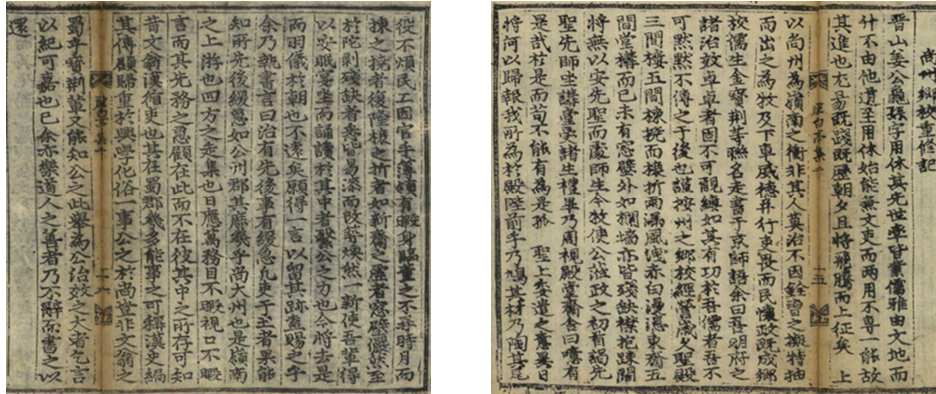 尙州鄕校重修記
晉山姜公龜孫字用休其先世率皆業儒雅由文地而
什不由他道至用休始能兼文吏而兩用不專一能故
其進也尤易旣踐旣歷朝夕且將飛騰而上征矣 上
十五
以尙州爲嶺南之衝非其人莫治不因銓曹之擬特抽
而出之爲牧及下車威德幷行吏畏而民懷政旣成鄕
校儒生金寶荆等聯名走書于京師語余曰吾明府之
諸治效卓卓者固不可覼縷如其有功於吾儒者吾不
可默默不傳之于後也謹按州之鄕校經營歲久聖殿
三間樓五間棟撓而樑折雨漏風洩赤白漫漶東齋五
間堂構而已未有窓壁外如欄墻亦皆殘缺樑抱疎闊
將無以安先聖而處師生今牧使公涖政之初首謁先
聖先師坐講堂學諸生禮畢乃周視殿堂齋舍曰噫有
是哉於是而苟不能有爲是孤 聖上委遣之意異日
將何以歸報我所爲於殿陛前乎乃鳩其材乃陶其瓦
役不煩民工因官手簿領有暇身臨董之不尋時月而
揀之撓者復隆榱之折者如新齋之廬者窓壁儼然至
於陀剝殘缺者悉皆易漆而改等煥然一新使吾輩得
以安眠宴坐而誦讀於其中者繄公之力也今將去是
而羽儀於朝也不遠矣願得一言以留其跡盍賜之乎
余乃執書言曰治有先後事有緩急凡吏于土者果能
知所先後緩急如公州郡其庶幾乎尙大州也是嶺南
之上游也四方之走集也日應萬務目不暇視口不暇
言而其先務之急顧在此而不在彼其中之所存可知
昔文翁漢循吏也其在蜀郡幾多能事之可稱漢史編
十六
其傳顧歸重於興學化俗一事公之於尙豈非文翁之
蜀乎寶荆輩又能知公之此擧爲公治效之大者乞言
以紀可嘉也已余亦樂道人之善者乃不辭而書之以
還